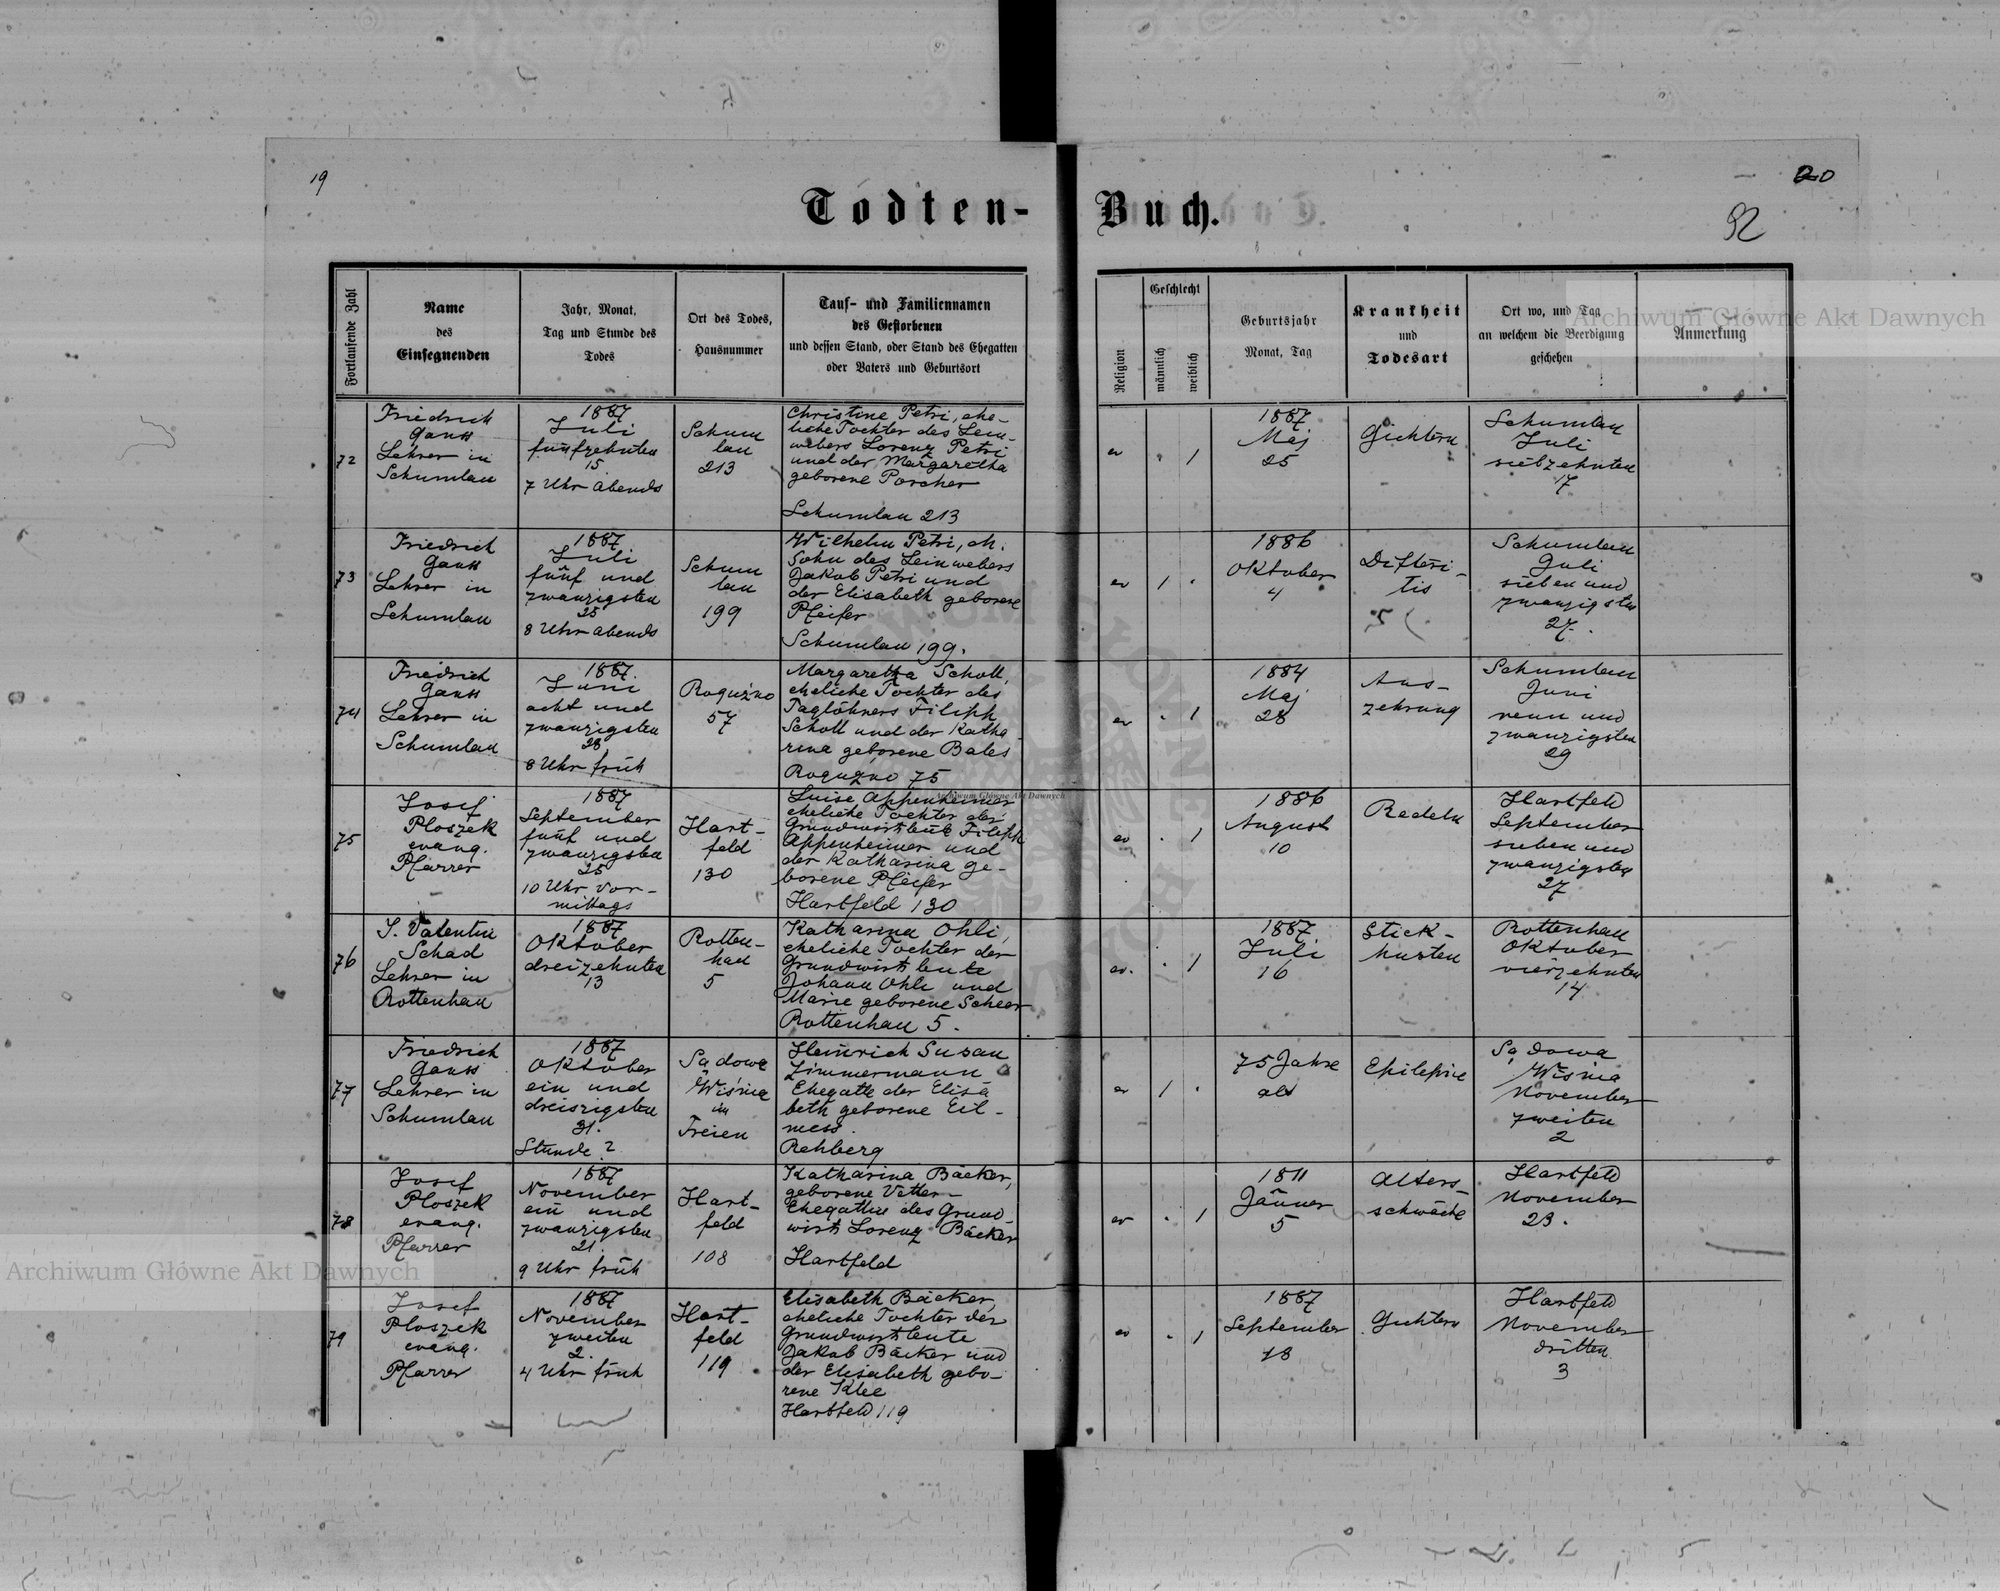 19
20
92
Todten-Buch.
Fortlaufende Zahl
Name
des
Einsegnenden
Jahr, Monat,
Tag und Stunde des
Todes
Ort des Todes,
Hausnummer
Tauf- und Familiennamen
des Gestorbenen
und dessen Stand, oder Stand des Ehegatten
oder Vaters und Geburtsort
Religion
Geschlecht
männlich
weiblich
Geburtsjahr
Monat, Tag
Krankheit
und
Todesart
Ort wo, und Tag
an welchem die Beerdigung
geschehen
Anmerkung
72
Friedrich
Gauss
Lehrer in
Schumlau
1887
Juli
fünfzehnten
15
7 Uhr Abends
Schum
lau
213
Christine Petri, ehe-
liche Tochter des Lein-
webers Lorenz Petri
und der Margaretha
geborene Porcher
Schumlau 213
ev
1
1887
Maj
25
Gichtern
Schumlau
Juli
siebzehnten
17
73
Friedrich
Gauss
Lehrer in
Schumlau
1887
Juli
fünf und
zwanzigsten
25
8 Uhr Abends
Schum
lau
199
Wilhelm Petri, eh.
Sohn des Leinwebers
Jakob Petri und
der Elisabeth geborene
Pfeifer
Schumlau 199.
ev
1
1886
Oktober
4
Difteri-
tis
Schumlau
Juli
sieben und
zwanzigsten
27.
74
Friedrich
Gauss
Lehrer in
Schumlau
1887.
Juni
acht und
zwanzigsten
28
8 Uhr früh
Roguźno
57
Margaretha Scholl,
eheliche Tochter des
Taglöhners Filiph
Scholl und der Katha
rina geborene Bales
Roguźno 75
ev
1
1884
Maj
28
Aus-
zehrung
Schumlau
Juni
neun und
zwanzigsten
29
75
Josef
Ploszek
evang.
Pfarrer
1887
September
fünf und
zwanzigsten
25
10 Uhr Vor-
mittags
Hart-
feld
130
Luise Appenheimer
eheliche Tochter der
Grundwirtsleute Filiph
Appenheimer und
der Katharina ge-
borene Pfeifer
Hartfeld 130
ev
1
1886
August
10
Redeln
Hartfeld
September
sieben und
zwanzigsten
27
76
J. Valentin
Schad
Lehrer in
Rottenhan
1887
Oktober
dreizehnten
13
Rotten-
han
5
Katharina Ohli,
eheliche Tochter der
Grundwirtsleute
Johann Ohli und
Marie geborene Scheer
Rottenhan 5.
ev.
1
1887
Juli
16
Stick-
husten
Rottenhan
Oktober
vierzehnten
14
77
Friedrich
Gauss
Lehrer in
Schumlau
1887
Oktober
ein und
dreiszigsten
31.
Stunde ?
Sądowa
Wiśnia
im
Freien
Heinrich Susan
Zimmermann
Ehegatte der Elisa
beth geborene Eil-
mess.
Rehberg
ev
1
75 Jahre
alt
Epilepsie
Sądowa
Wiśnia
November
zweiten
2
78
Josef
Ploszek
evang.
Pfarrer
1887
November
ein und
zwanzigsten
21.
9 Uhr früh
Hart-
feld
108
Katharina Bäcker,
geborene Vetter-
Ehegattin des Grund-
wirts Lorenz Bäcker
Hartfeld
ev
1
1811
Jänner
5
Alters-
schwäche
Hartfeld
November
23.
79
Josef
Ploszek
evang.
Pfarrer
1887
November
zweiten
2.
4 Uhr früh
Hart-
feld
119
Elisabeth Bäcker,
eheliche Tochter der
Grundwirtsleute
Jakob Bäcker und
der Elisabeth gebo-
rene Klee
Hartfeld 119
ev
1
1887
September
13
Gichtern
Hartfeld
November
dritten
3
Archiwum Główne Akt Dawnych
Archiwum Główne Akt Dawnych
Archiwum Główne Akt Dawnych